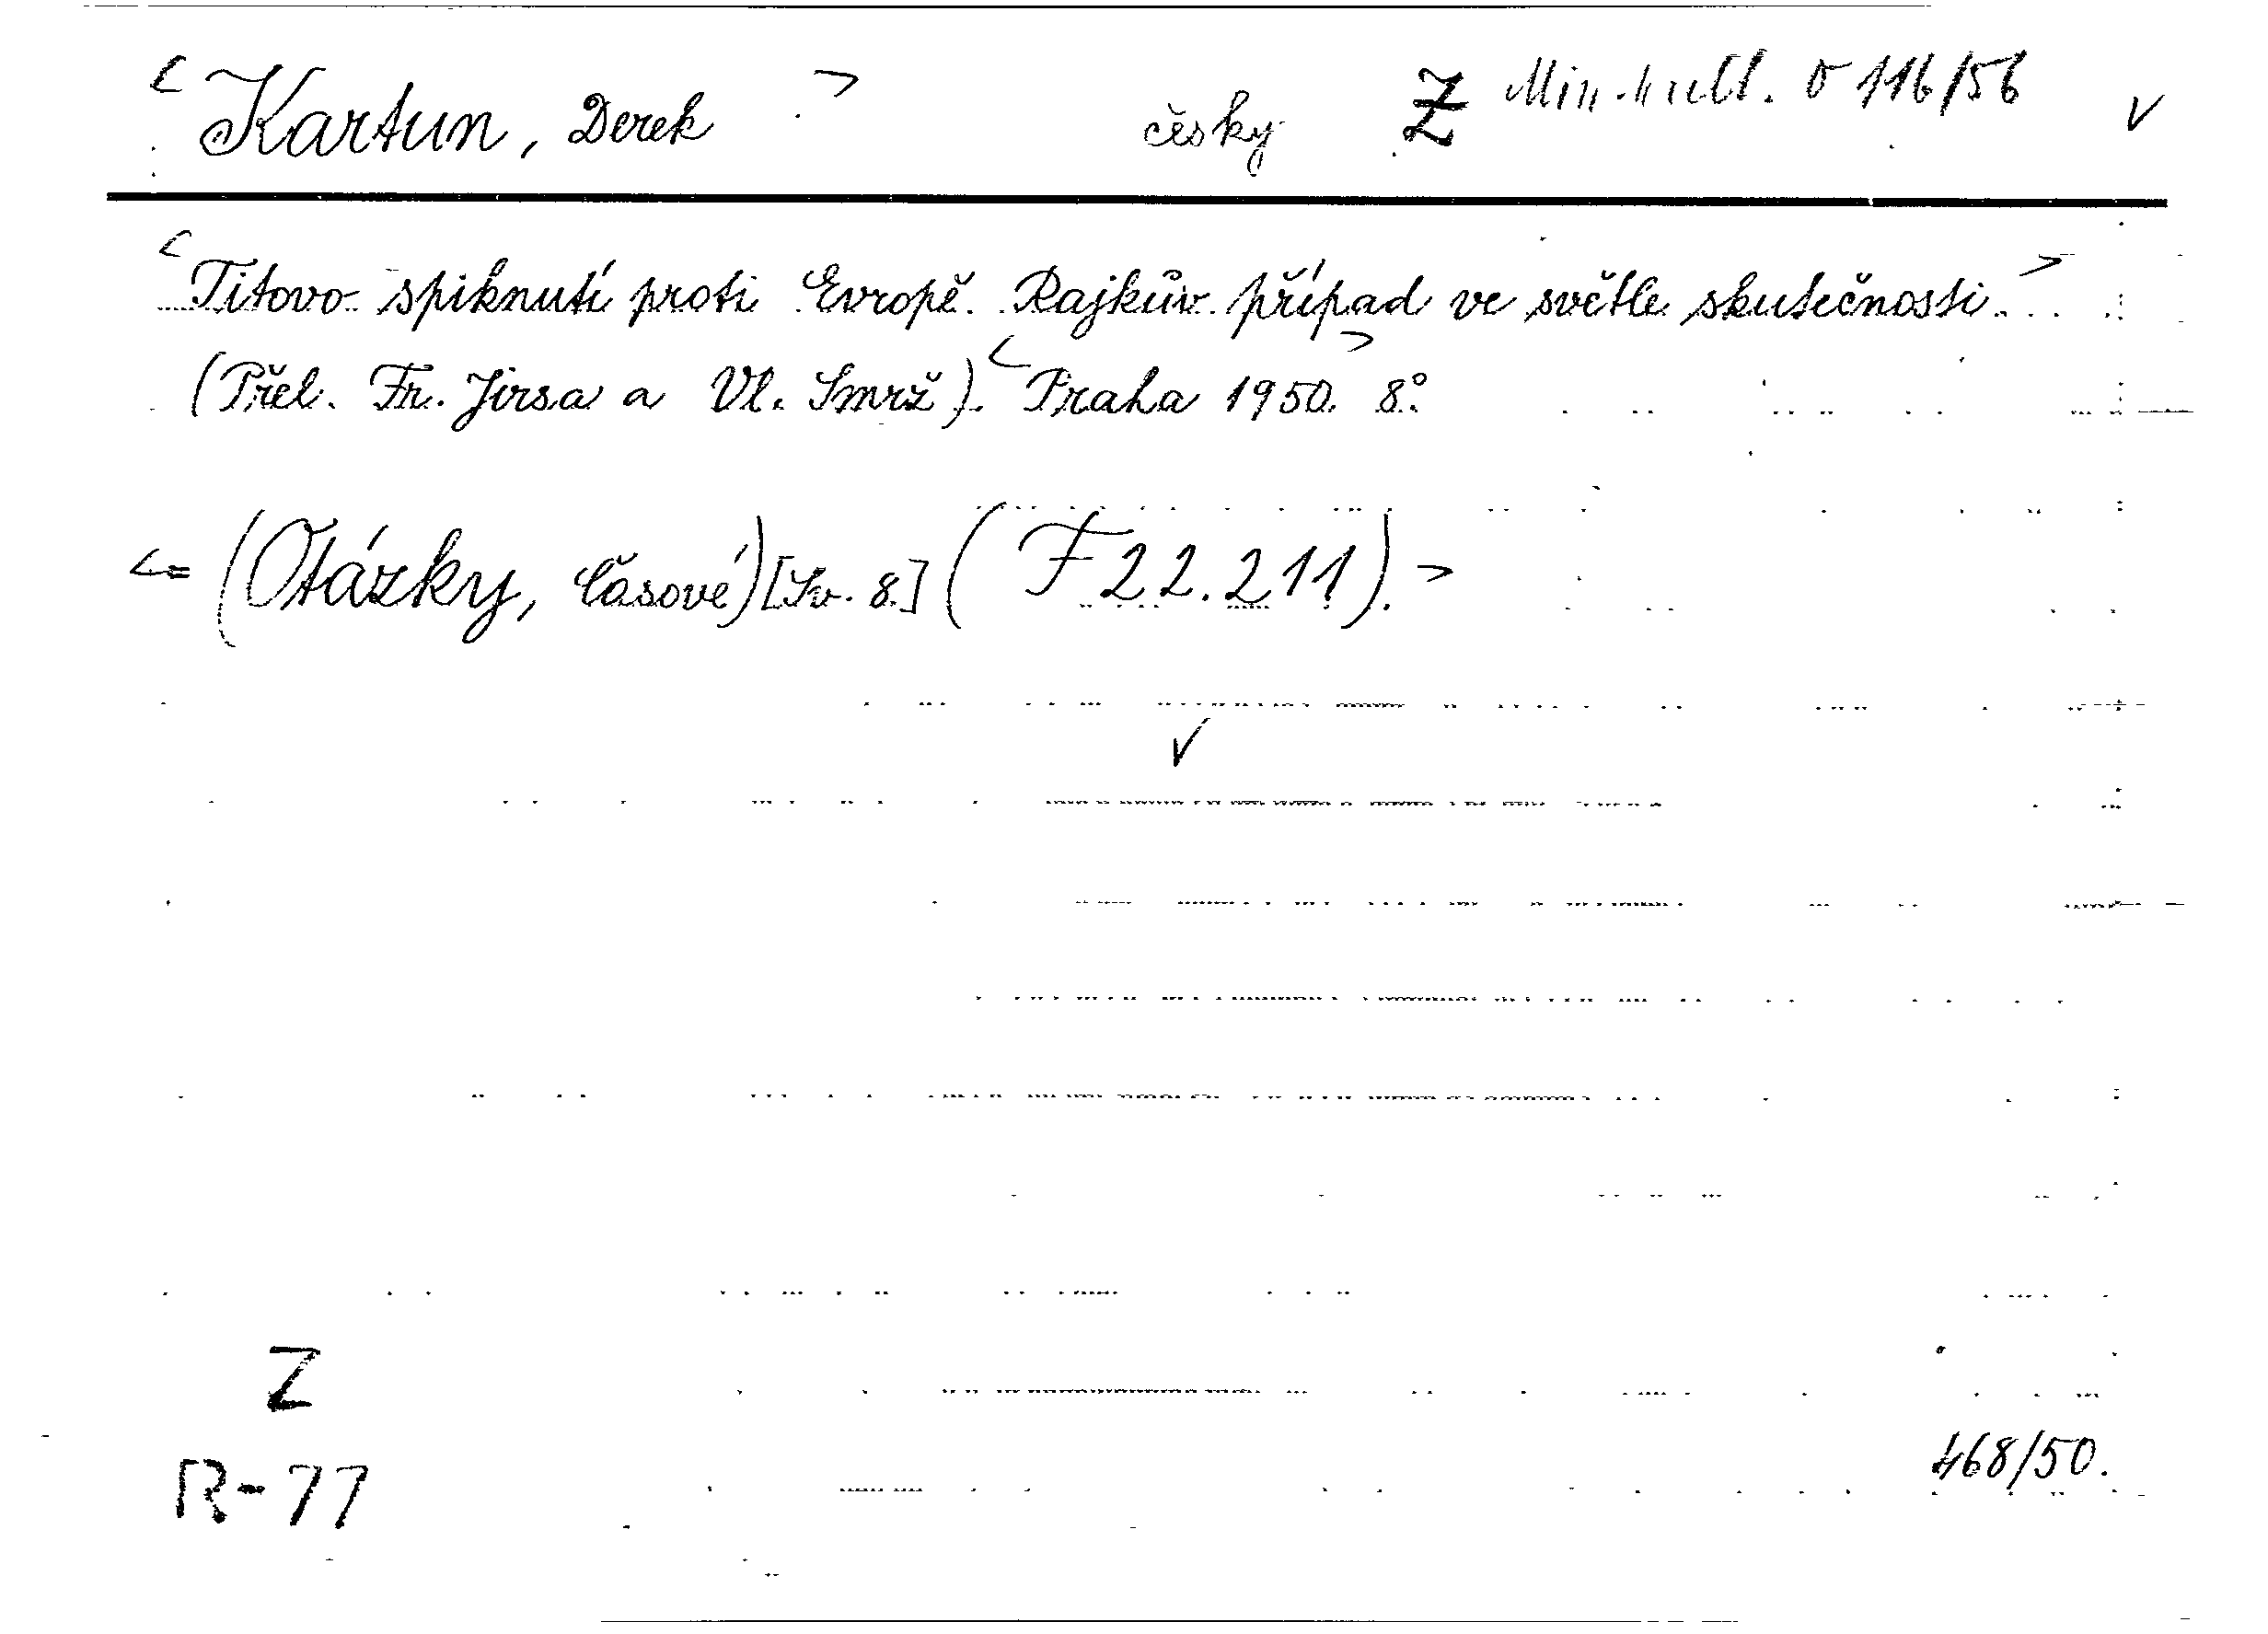 < Kartun, Derek > česky Z Min. kult. 0 116/56 √
< Titovo spiknutí proti Evropě. Rajkův případ ve světle skutečnosti. >
(Přel. Fr. Jirsa a Vl. Smrž). < Praha 1950. > 8°.
<= (Otázky, časové) [Sv. 8.] (F 22.211). >
√
Z
R-77
468/50.